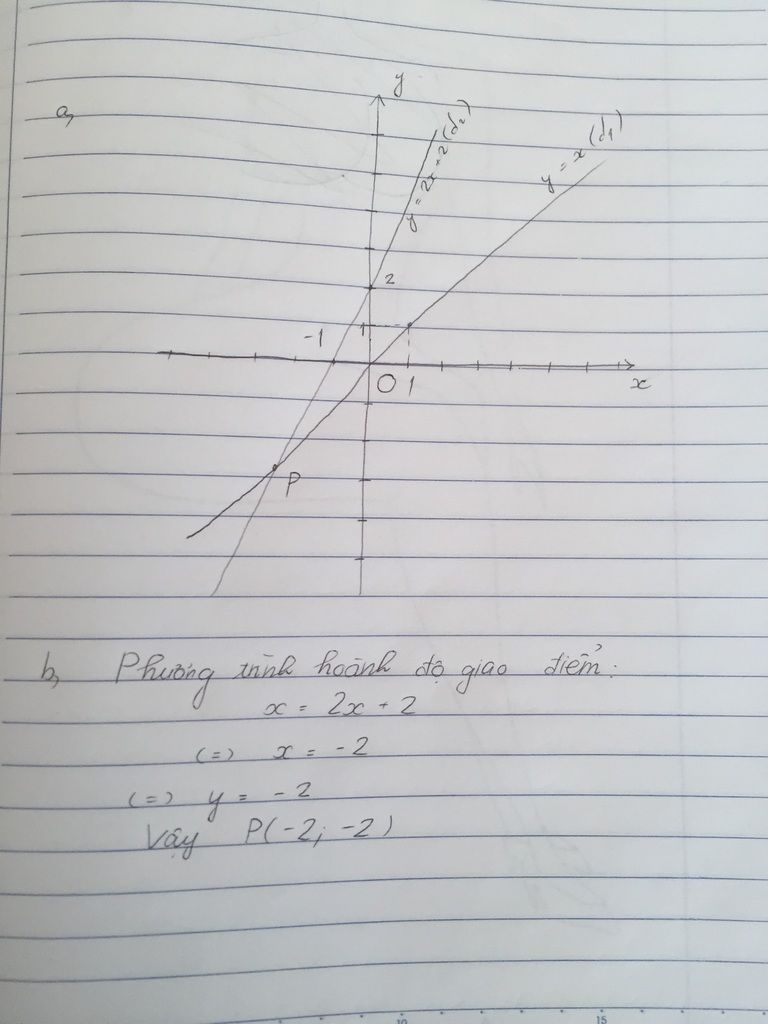 a,
y
y = 2x + 2 (d₂)
y = x (d₁)
2
-1
1
O
1
x
P
b, Phương trình hoành độ giao điểm:
x = 2x + 2
(=) x = -2
(=) y = -2
Vậy P(-2; -2)
10
15